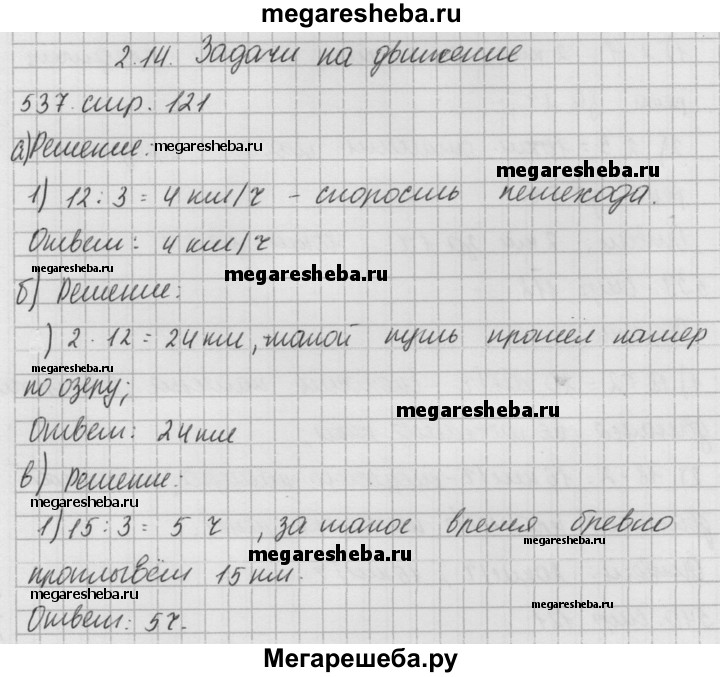 megaresheba.ru
2.14. Задачи на движение
537 стр. 121
а) Решение: megaresheba.ru
megaresheba.ru
1) 12 : 3 = 4 км/ч - скорость пешехода.
Ответ: 4 км/ч
megaresheba.ru megaresheba.ru
б) Решение:
) 2 · 12 = 24 км, такой путь прошёл катер
megaresheba.ru
по озеру;
megaresheba.ru
Ответ: 24 км
в) Решение:
megaresheba.ru
1) 15 : 3 = 5 ч , за такое время бревно
megaresheba.ru megaresheba.ru
проплывёт 15 км.
megaresheba.ru megaresheba.ru
Ответ: 5 ч.
Мегарешеба.ру